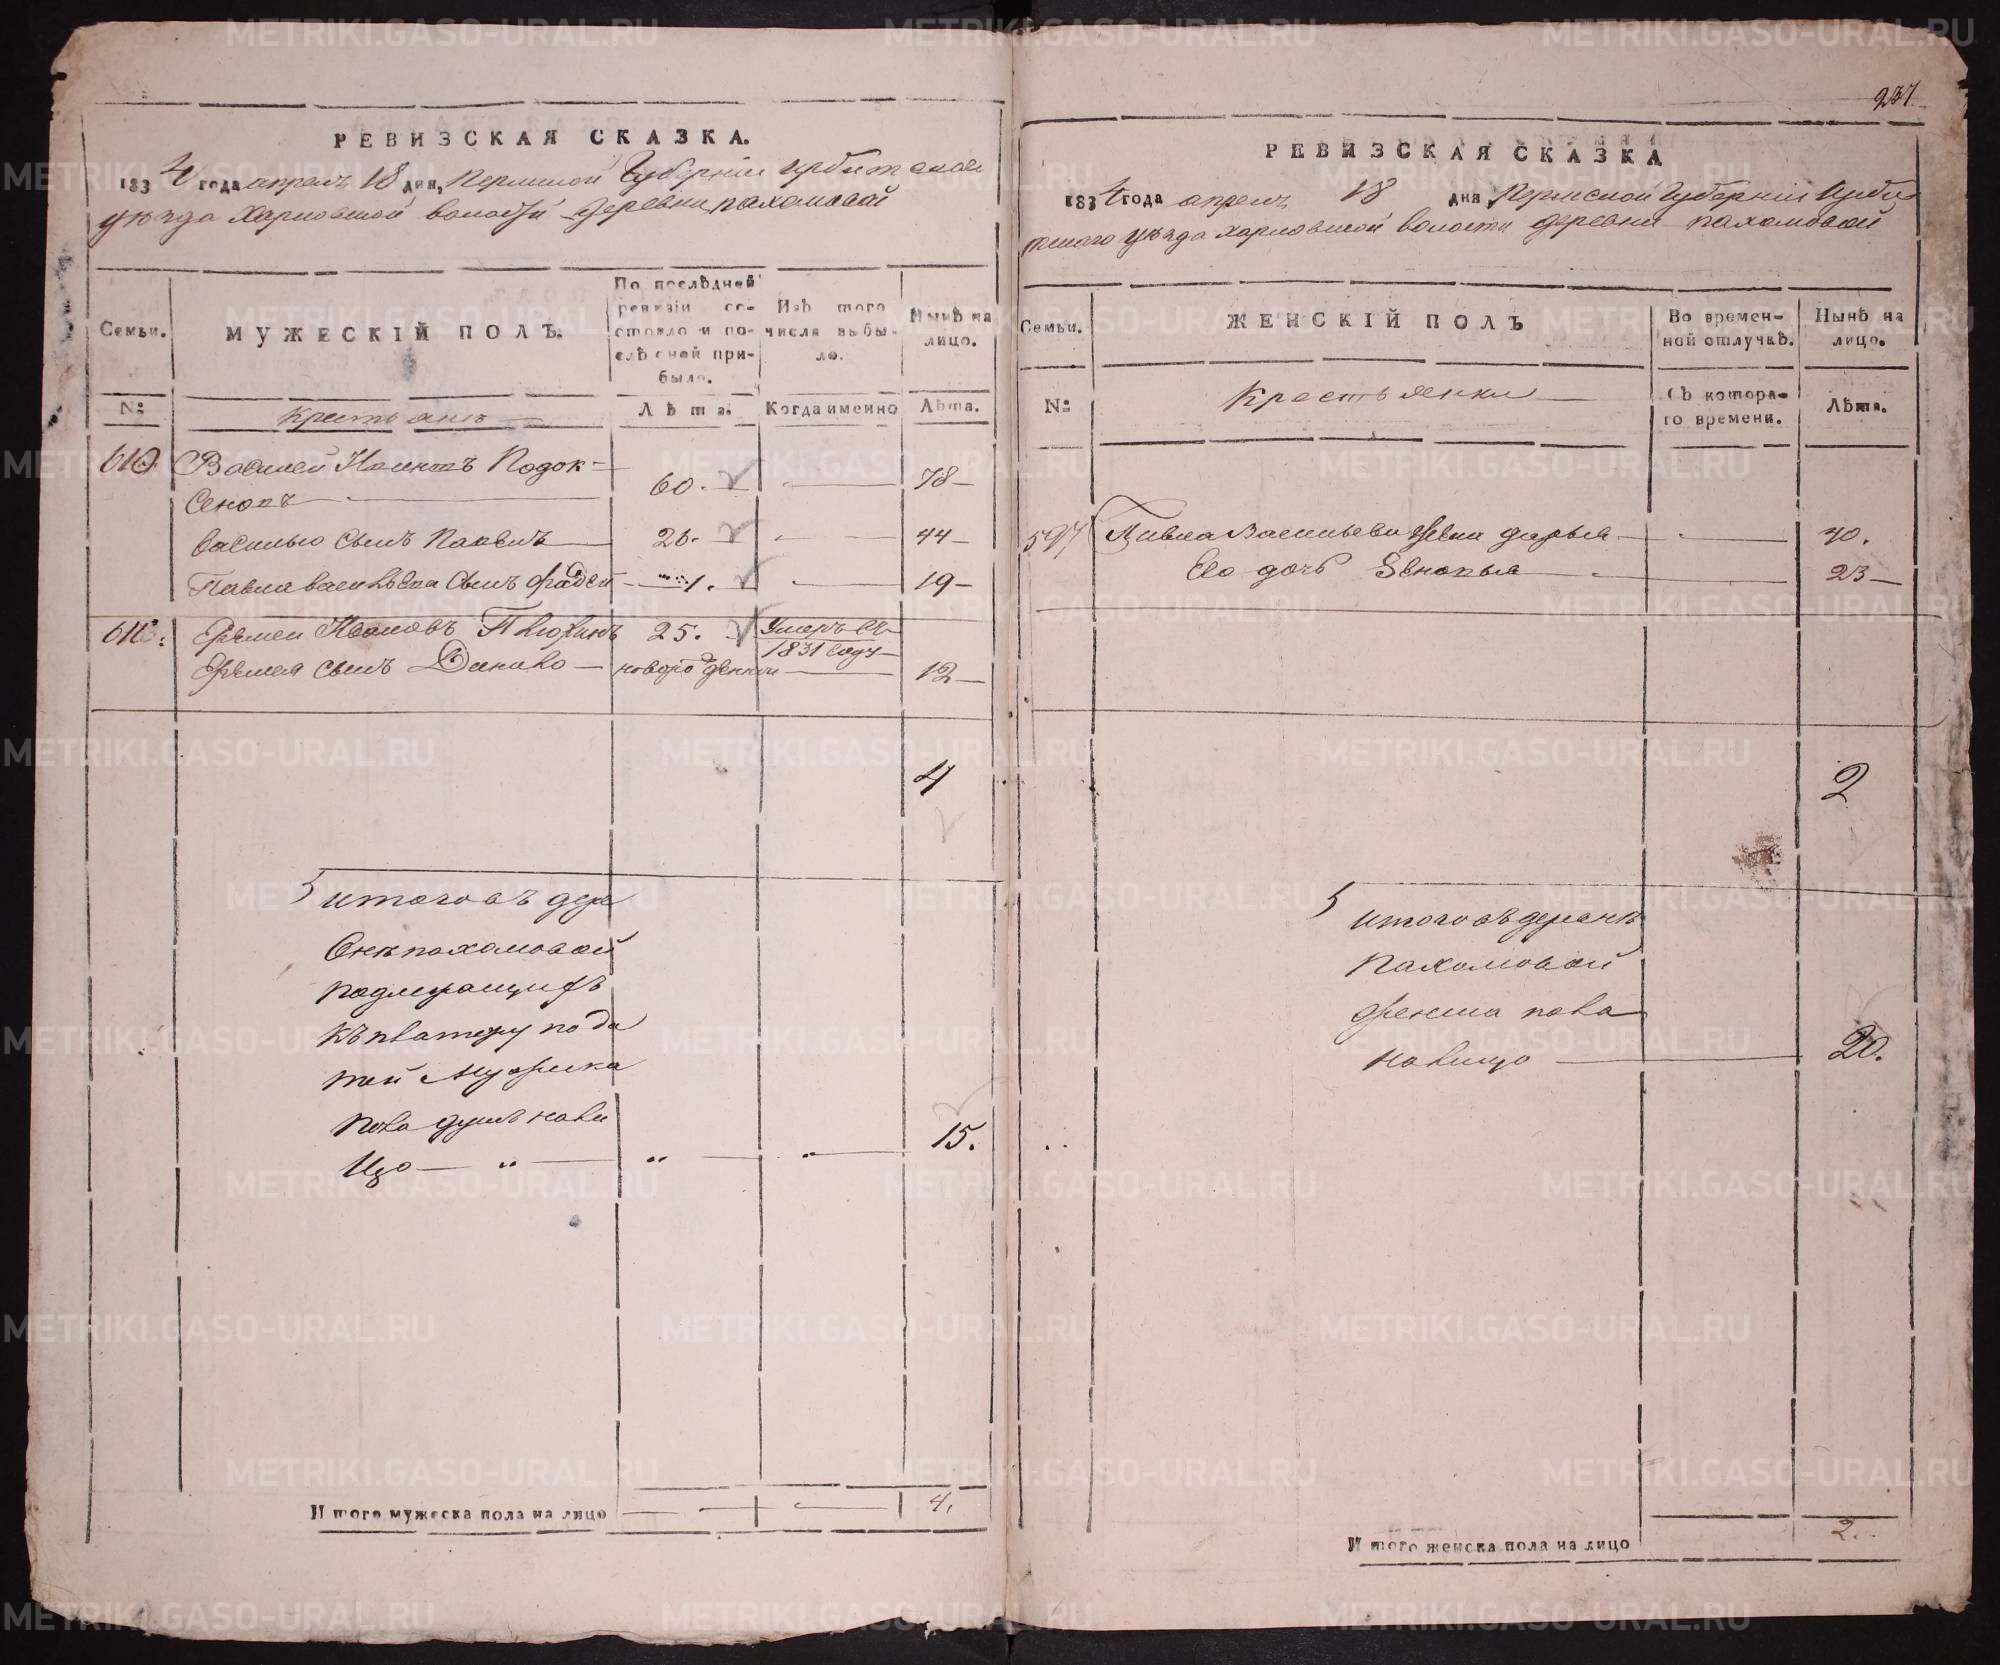 РЕВИЗСКАЯ СКАЗКА.
1834 года апреля 18 дня, Пермской Губернии Ирбитскаго
уезда Харловской волости деревни пахомовой
Семьи.
МУЖЕСКІЙ ПОЛЪ.
По послѣдней ревизіи состояло и послѣ оной прибыло.
Изъ того числа выбыло.
Нынѣ на лицо.
№
Крестьянъ
Лѣта.
Когда именно
Лѣта.
Василей
60. 78
Василью сынъ Павелъ 26. 44
Павла васильева сынъ фадей 1. 19
Еремей 25. Умеръ въ 1831 году
Еремея сынъ Данило новорожденной 12
4
итого въ дере
внѣ пахомовой
подлежащихъ
къ платежу пода
тей Мужеска
пола душъ нали
цо 15.
Итого мужеска пола на лицо 4.
237
РЕВИЗСКАЯ СКАЗКА
1834 года апреля 18 дня Пермской Губерніи Ирби
тскаго уезда харловской волости деревни пахомовой
Семьи.
ЖЕНСКІЙ ПОЛЪ
Во временной отлучкѣ.
Нынѣ на лицо.
№
Крестьянки
Съ котораго времени.
Лѣта.
597 Павла Васильева жена дарья 40.
Его дочь 23
2
итого въ деревнѣ
Пахомовой
женска пола
налицо 20.
Итого женска пола на лицо 2.
METRIKI.GASO-URAL.RU